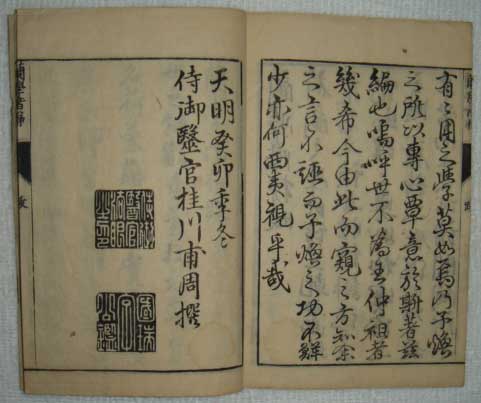 有〻用之學莫如焉乃子煥
之所以專心覃意於斯著茲
編也嗚呼世不為生仲祖者
幾希今由此而窺之方知余
之言不誣而子煥之功不鮮
少亦何西夷視乎哉
天明癸卯季冬
侍御醫官桂川甫周撰